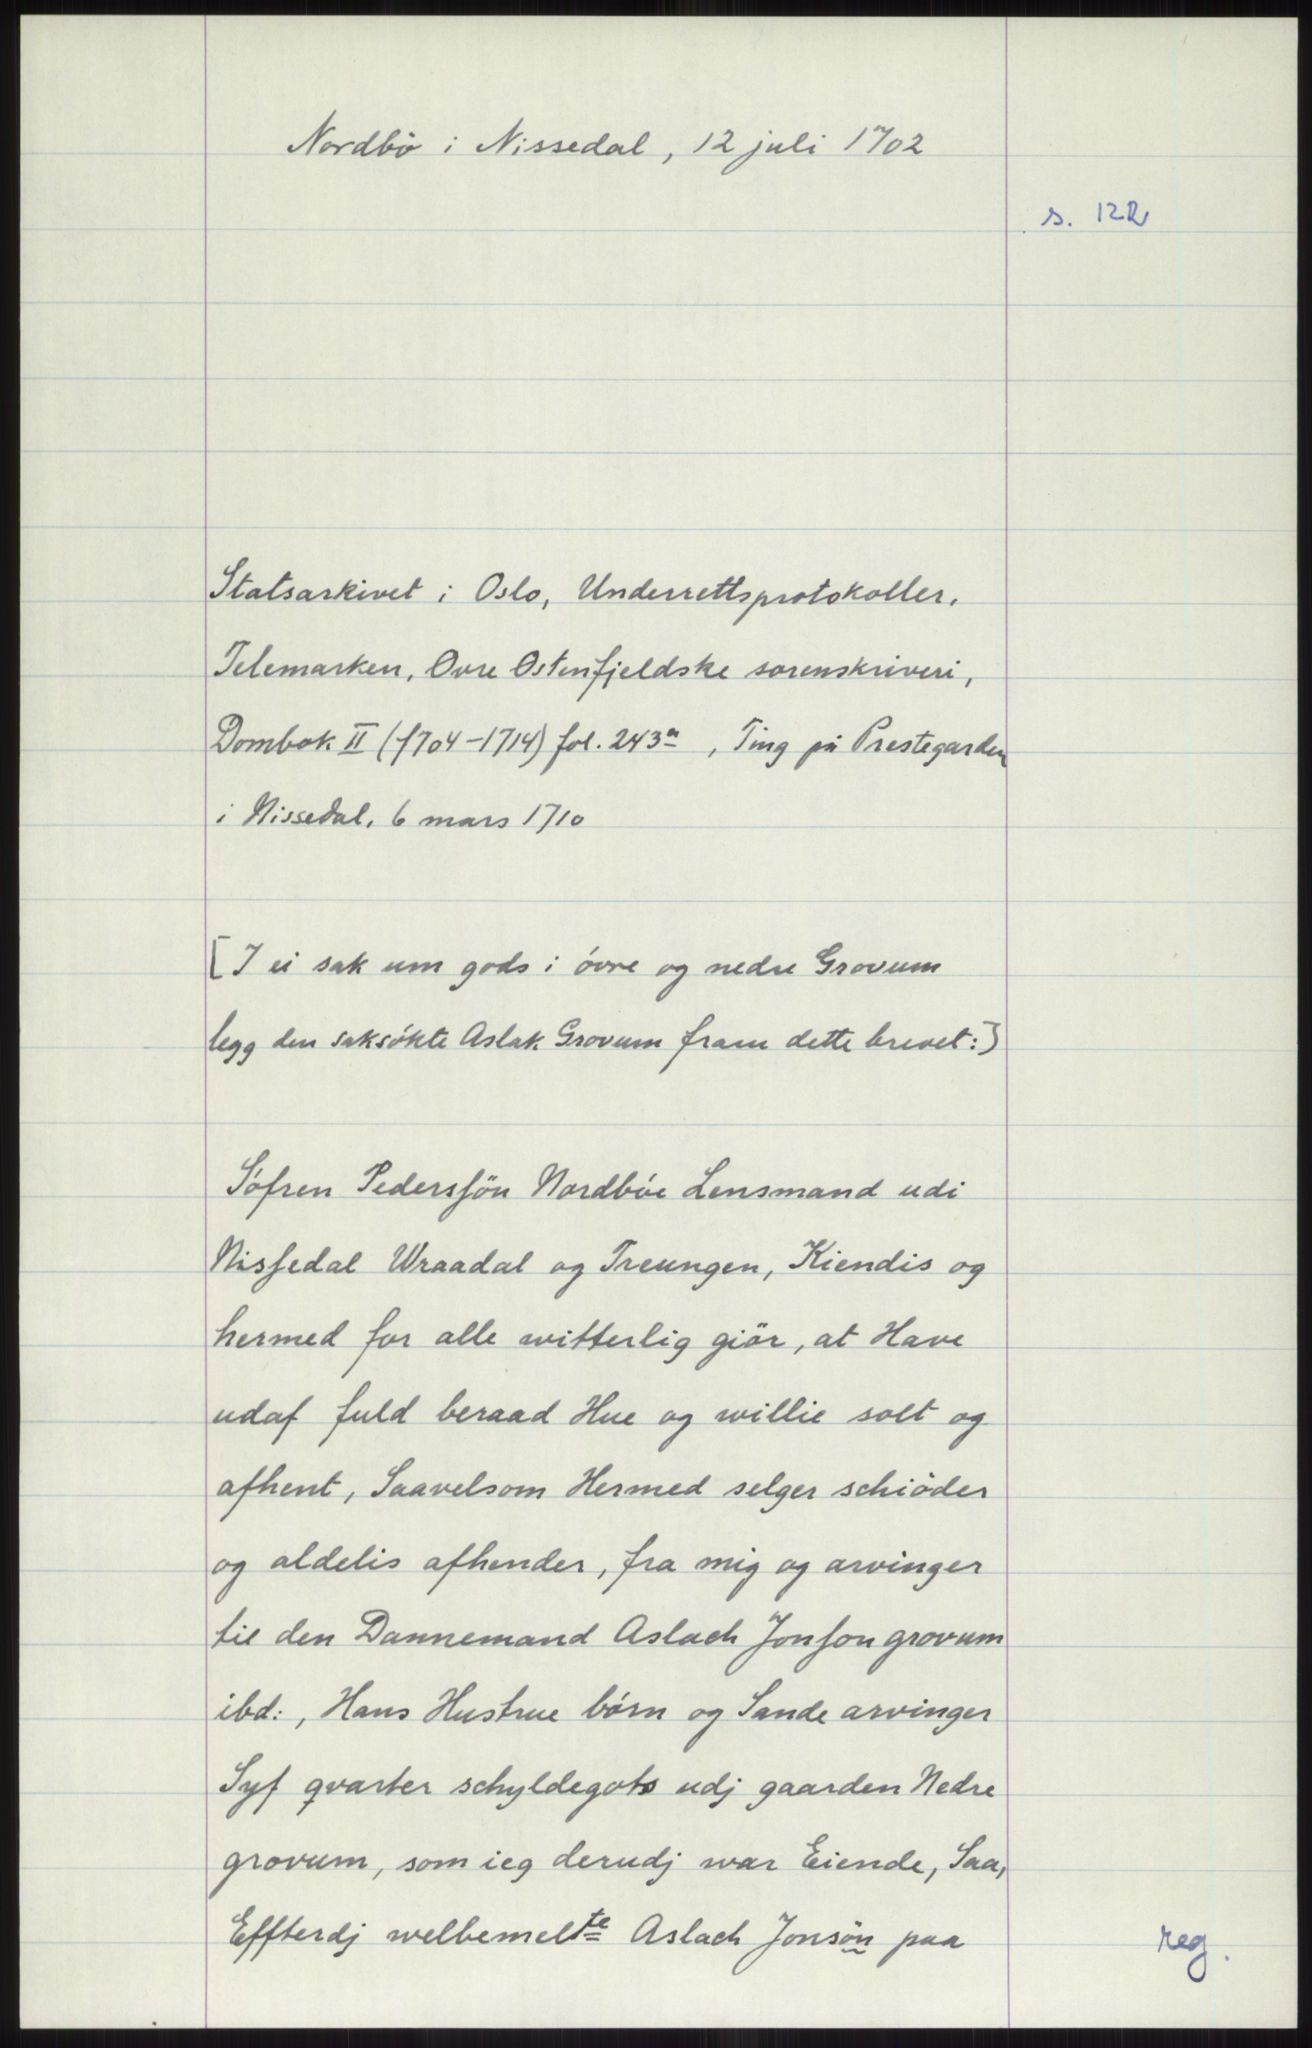 Nordbö i Nissedal, 12 juli 1702
s. 122
Statsarkivet i Oslo, Underrettsprotokoller.
Telemarken, Ovre Ostenfjeldske sorenskriveri,
Dombok II (1704-1714) fol. 243a, Ting på Prestegarden
i Nissedal, 6 mars 1710
[I ei sak um gods i óvre og nedre Grovum
legg den saksókte Aslak Grovum fram dette brevet:]
Sófren Pedersfön Nordbóe Lensmand udi
Nisfedal Wraadal og Treungen, Kiendis og
hermed for alle witterlig giör, at Have
udaf fuld beraad Hue og willie solt og
afhent, Saavelsom Hermed selger schióder
og aldelis afhender, fra mig og arvinger
til den Dannemand Aslach Jonson grovum
ibd:, Hans Hustrue bórn og Sande arvinger
Syf qvarter schyldegots udj gaarden Nedre
grovum, som ieg derudj war Eiende, Saa,
Effterdj welbemelte Aslach Jonsön paa
reg.